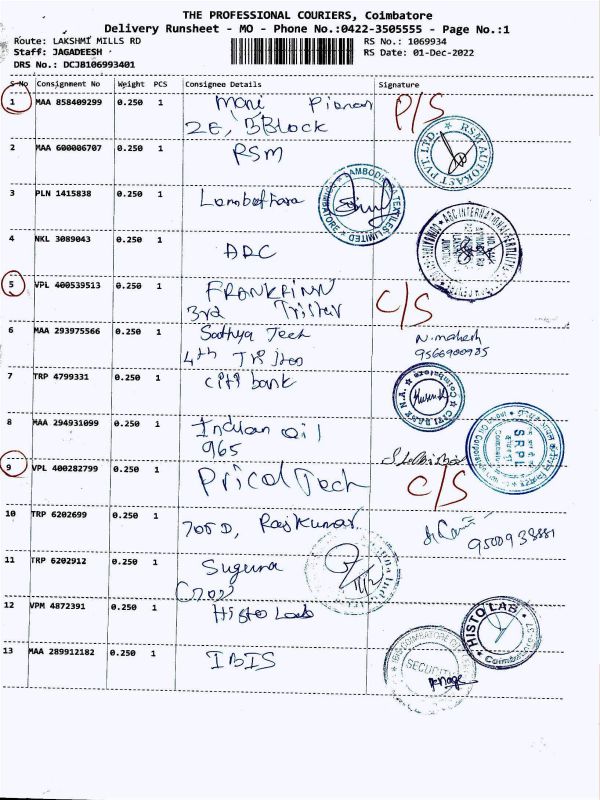 THE PROFESSIONAL COURIERS, Coimbatore
Delivery Runsheet - MO - Phone No.:0422-3505555 - Page No.:1
Route: LAKSHMI MILLS RD
RS No.: 1069934
Staff: JAGADEESH
RS Date: 01-Dec-2022
DRS No.: DCJB106993401
S No Consignment No Weight PCS Consignee Details Signature
1 MAA 858409299 0.250 1 Mani P/S
2E, BBlock
2 MAA 600006707 0.250 1 RSM
RSM AUTOKAST PVT. LTD.
3 PLN 1415838 0.250 1 Lambodhara
LAMBODHARA TEXTILES LIMITED
COIMBATORE
4 NKL 3089043 0.250 1 ARC
ARC INTERNATIONAL FERTILITY
5 VPL 400539513 0.250 1 FRANKFINN C/S
3rd
6 MAA 293975566 0.250 1 Sathya Tech N. mahesh
4th 9566900985
7 TRP 4799331 0.250 1 citi bank
CITIBANK N.A. Coimbatore
8 MAA 294931099 0.250 1 Indian oil
965
SRPL
9 VPL 400282799 0.250 1 Prical Tech C/S
10 TRP 6202699 0.250 1 705 D, Rajkumar
11 TRP 6202912 0.250 1 Suguna
12 VPM 4872391 0.250 1 Histo Lab
HISTO LAB
Coimbatore
13 MAA 289912182 0.250 1 IBIS
SECURITY